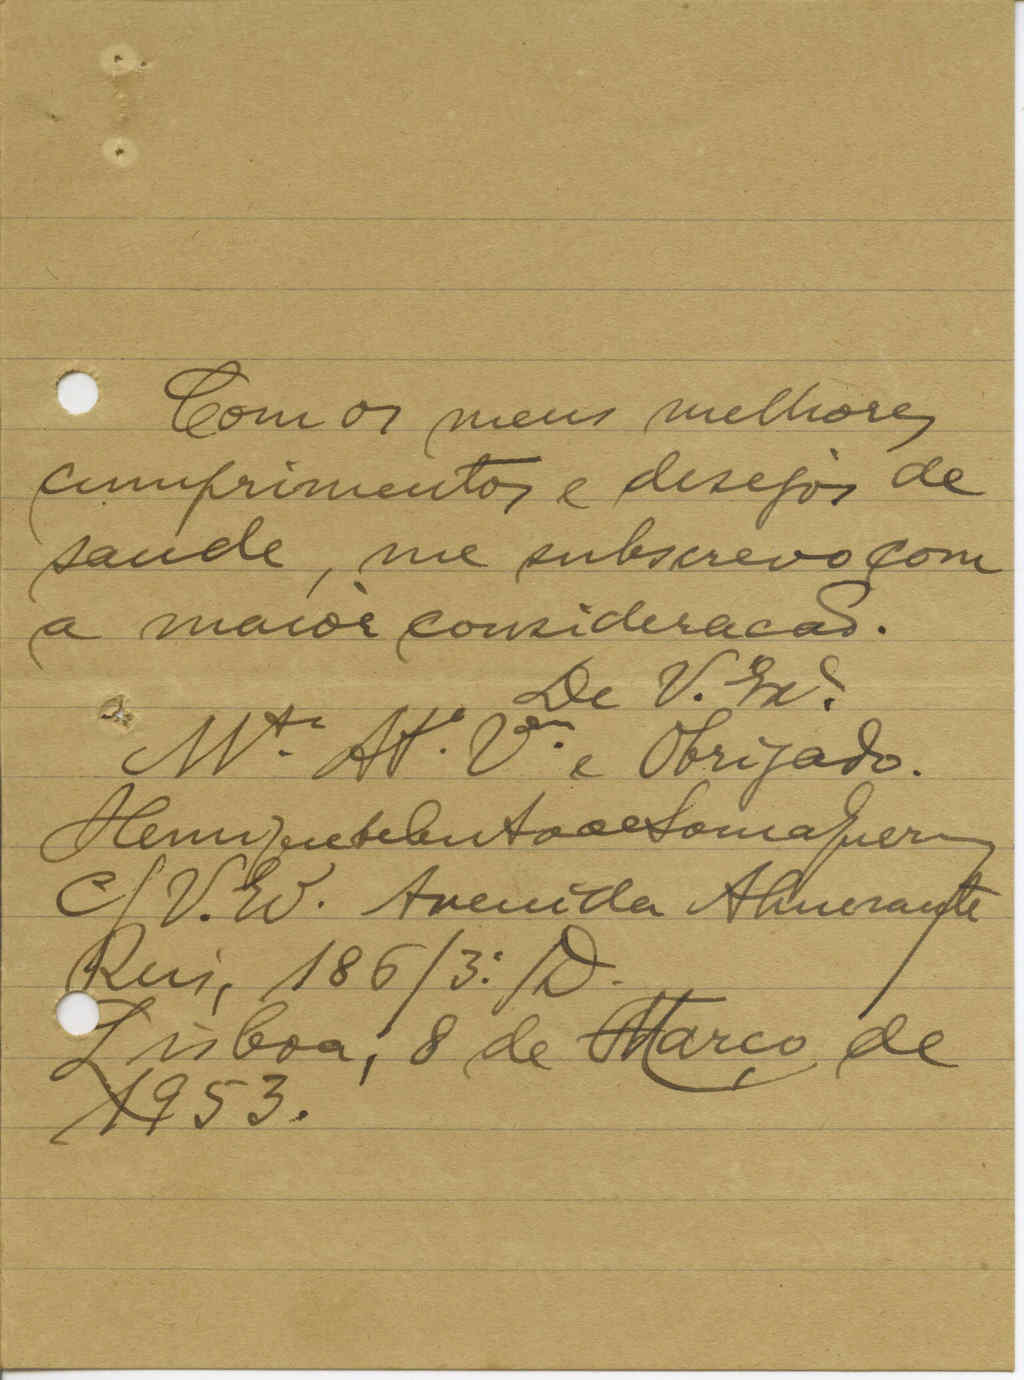 Com os meus melhores
cumprimentos e desejos de
saude, me subscrevo com
a maiór consideracaõ.
De V. Exª.
Mtº. Attº. Vdor. e Obrigado.
Henrique
C/ V. Exª. Avenida Almirante
Reis, 186/3º/D.
Lisboa, 8 de Março de
1953.